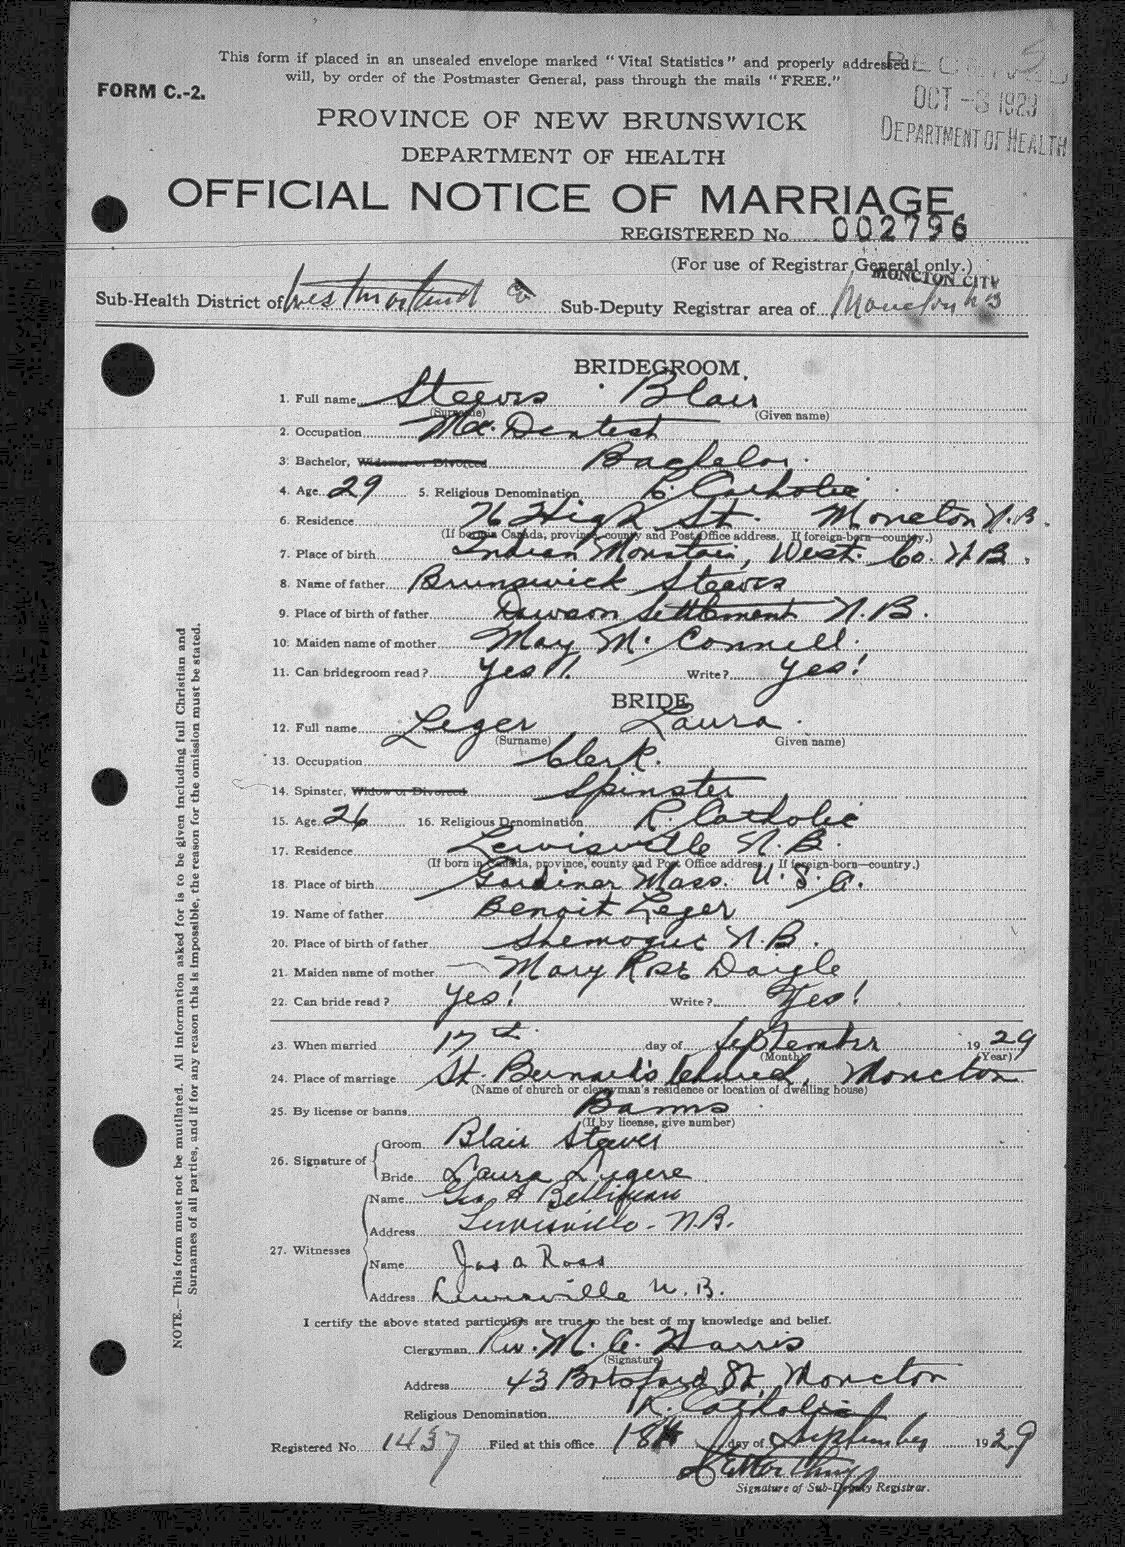 This form if placed in an unsealed envelope marked "Vital Statistics" and properly addressed
will, by order of the Postmaster General, pass through the mails "FREE."
RECEIVED
OCT -3 1929
DEPARTMENT OF HEALTH
FORM C.-2.
PROVINCE OF NEW BRUNSWICK
DEPARTMENT OF HEALTH
OFFICIAL NOTICE OF MARRIAGE
REGISTERED No. 002796
(For use of Registrar General only.)
MONCTON CITY
Sub-Health District of Westmorland Co Sub-Deputy Registrar area of Moncton N B
BRIDEGROOM
1. Full name Steeves Blair
(Surname) (Given name)
2. Occupation Dentest
3. Bachelor, Widower or Divorced Bachelor.
4. Age 29 5. Religious Denomination R. Catholic
6. Residence 76 High St. Moncton N.B.
(If born in Canada, province, county and Post Office address. If foreign-born—country.)
7. Place of birth Indian Mountain, West. Co. N.B.
8. Name of father Brunswick Steeves
9. Place of birth of father Dawson Settlement N.B.
10. Maiden name of mother May McConnell.
11. Can bridegroom read? Yes Write? Yes!
BRIDE
12. Full name Leger Laura
(Surname) Given name)
13. Occupation Clerk.
14. Spinster, Widow or Divorced Spinster
15. Age 26 16. Religious Denomination R. Catholic
17. Residence Lewisville N.B.
(If born in Canada, province, county and Post Office address. If foreign-born—country.)
18. Place of birth Gardiner Mass. U.S.A.
19. Name of father Benoit Leger
20. Place of birth of father Shemogue N.B.
21. Maiden name of mother Mary Rose Daigle
22. Can bride read? Yes! Write? Yes!
23. When married 17th day of September 1929
(Month) (Year)
24. Place of marriage St. Bernard's Church, Moncton
(Name of church or clergyman's residence or location of dwelling house)
25. By license or banns Banns
(If by license, give number)
26. Signature of Groom Blair Steeves
Bride Laura Legere
27. Witnesses Name Geo A Belliveau
Address Lewisville - N.B.
Name Jas A Ross
Address Lewisville N.B.
I certify the above stated particulars are true to the best of my knowledge and belief.
Clergyman Rev. M. A. Harris
(Signature)
Address 43 Botsford St, Moncton
Religious Denomination R. Catholic
Registered No. 1437 Filed at this office 18th day of September 1929
Signature of Sub-Deputy Registrar.
NOTE.—This form must not be mutilated. All information asked for is to be given including full Christian and
Surnames of all parties, and if for any reason this is impossible, the reason for the omission must be stated.